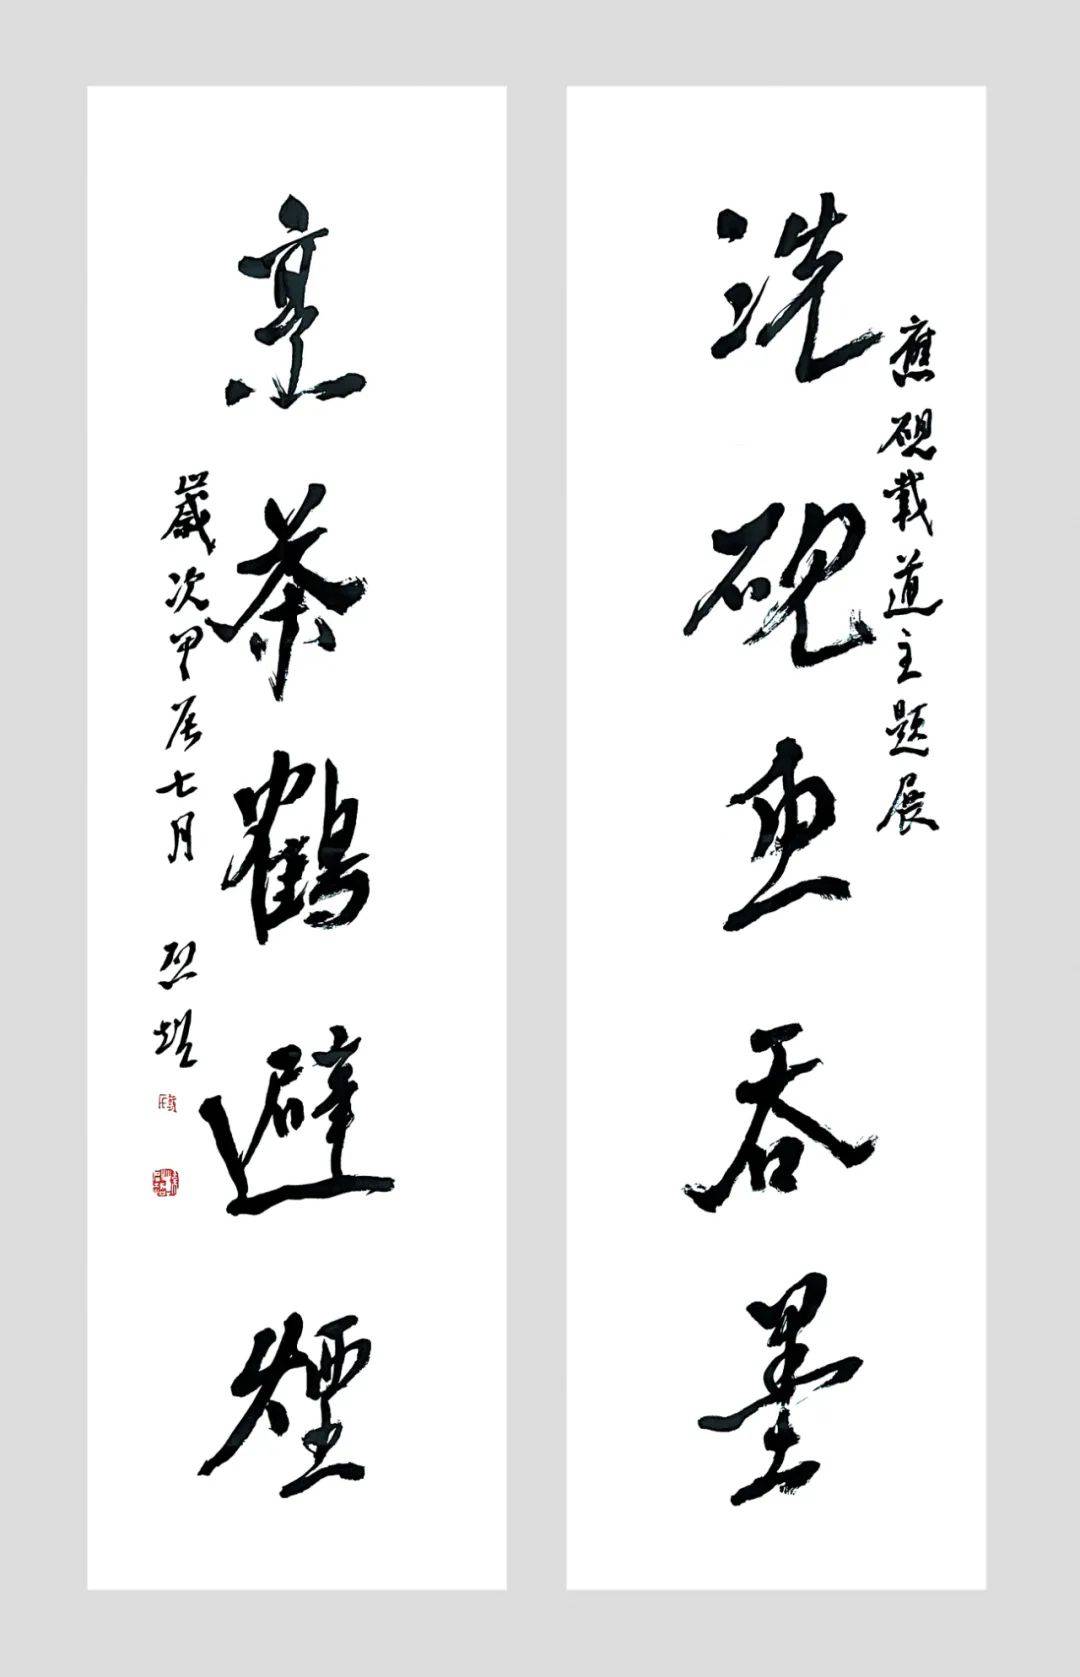 應硯載道主題展
洗硯魚吞墨
烹茶鶴避煙
歲次甲辰七月